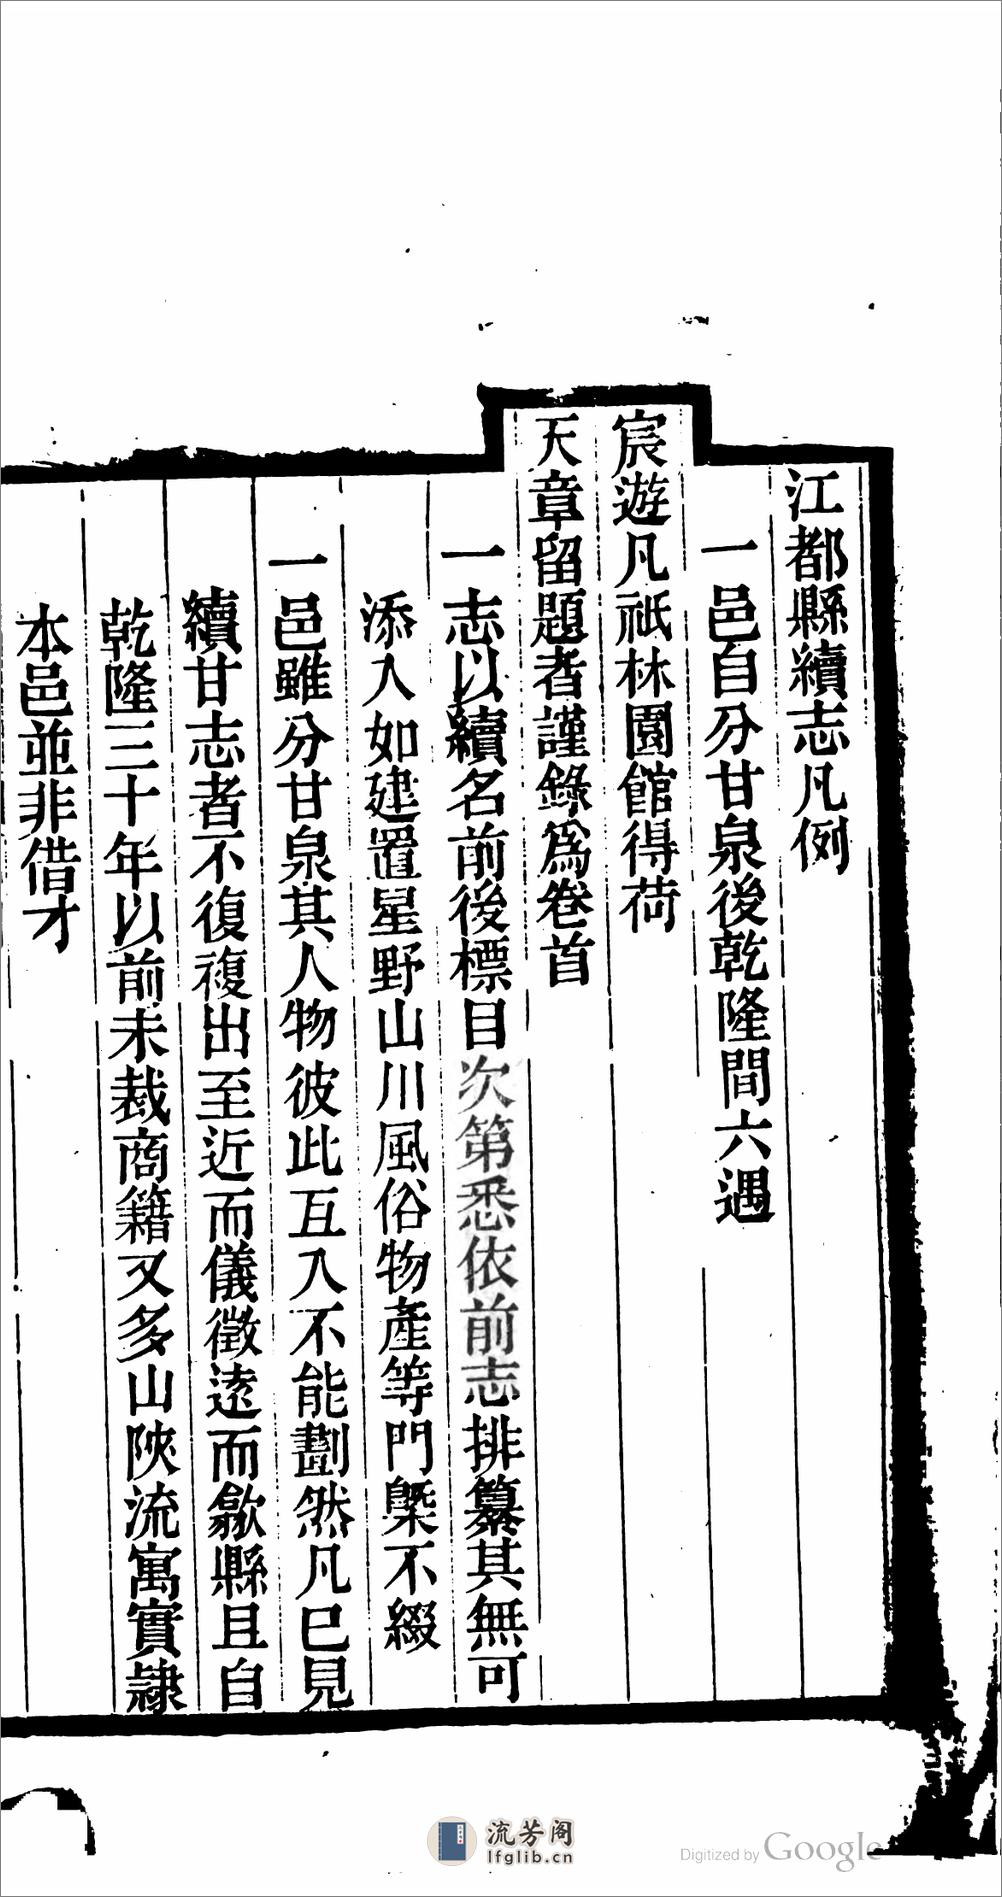 江都縣續志凡例
一邑自分甘泉後乾隆間六遇
宸遊凡祇林園館得荷
天章留題者謹錄爲卷首
一志以續名前後標目次第悉依前志排纂其無可
添入如建置星野山川風俗物產等門槩不綴
一邑雖分甘泉其人物彼此互入不能劃然凡已見
續甘志者不復複出至近而儀徵遠而歙縣且自
乾隆三十年以前未裁商籍又多山陝流寓實隷
本邑並非借才
流芳阁
lfglib.cn
Digitized by Google